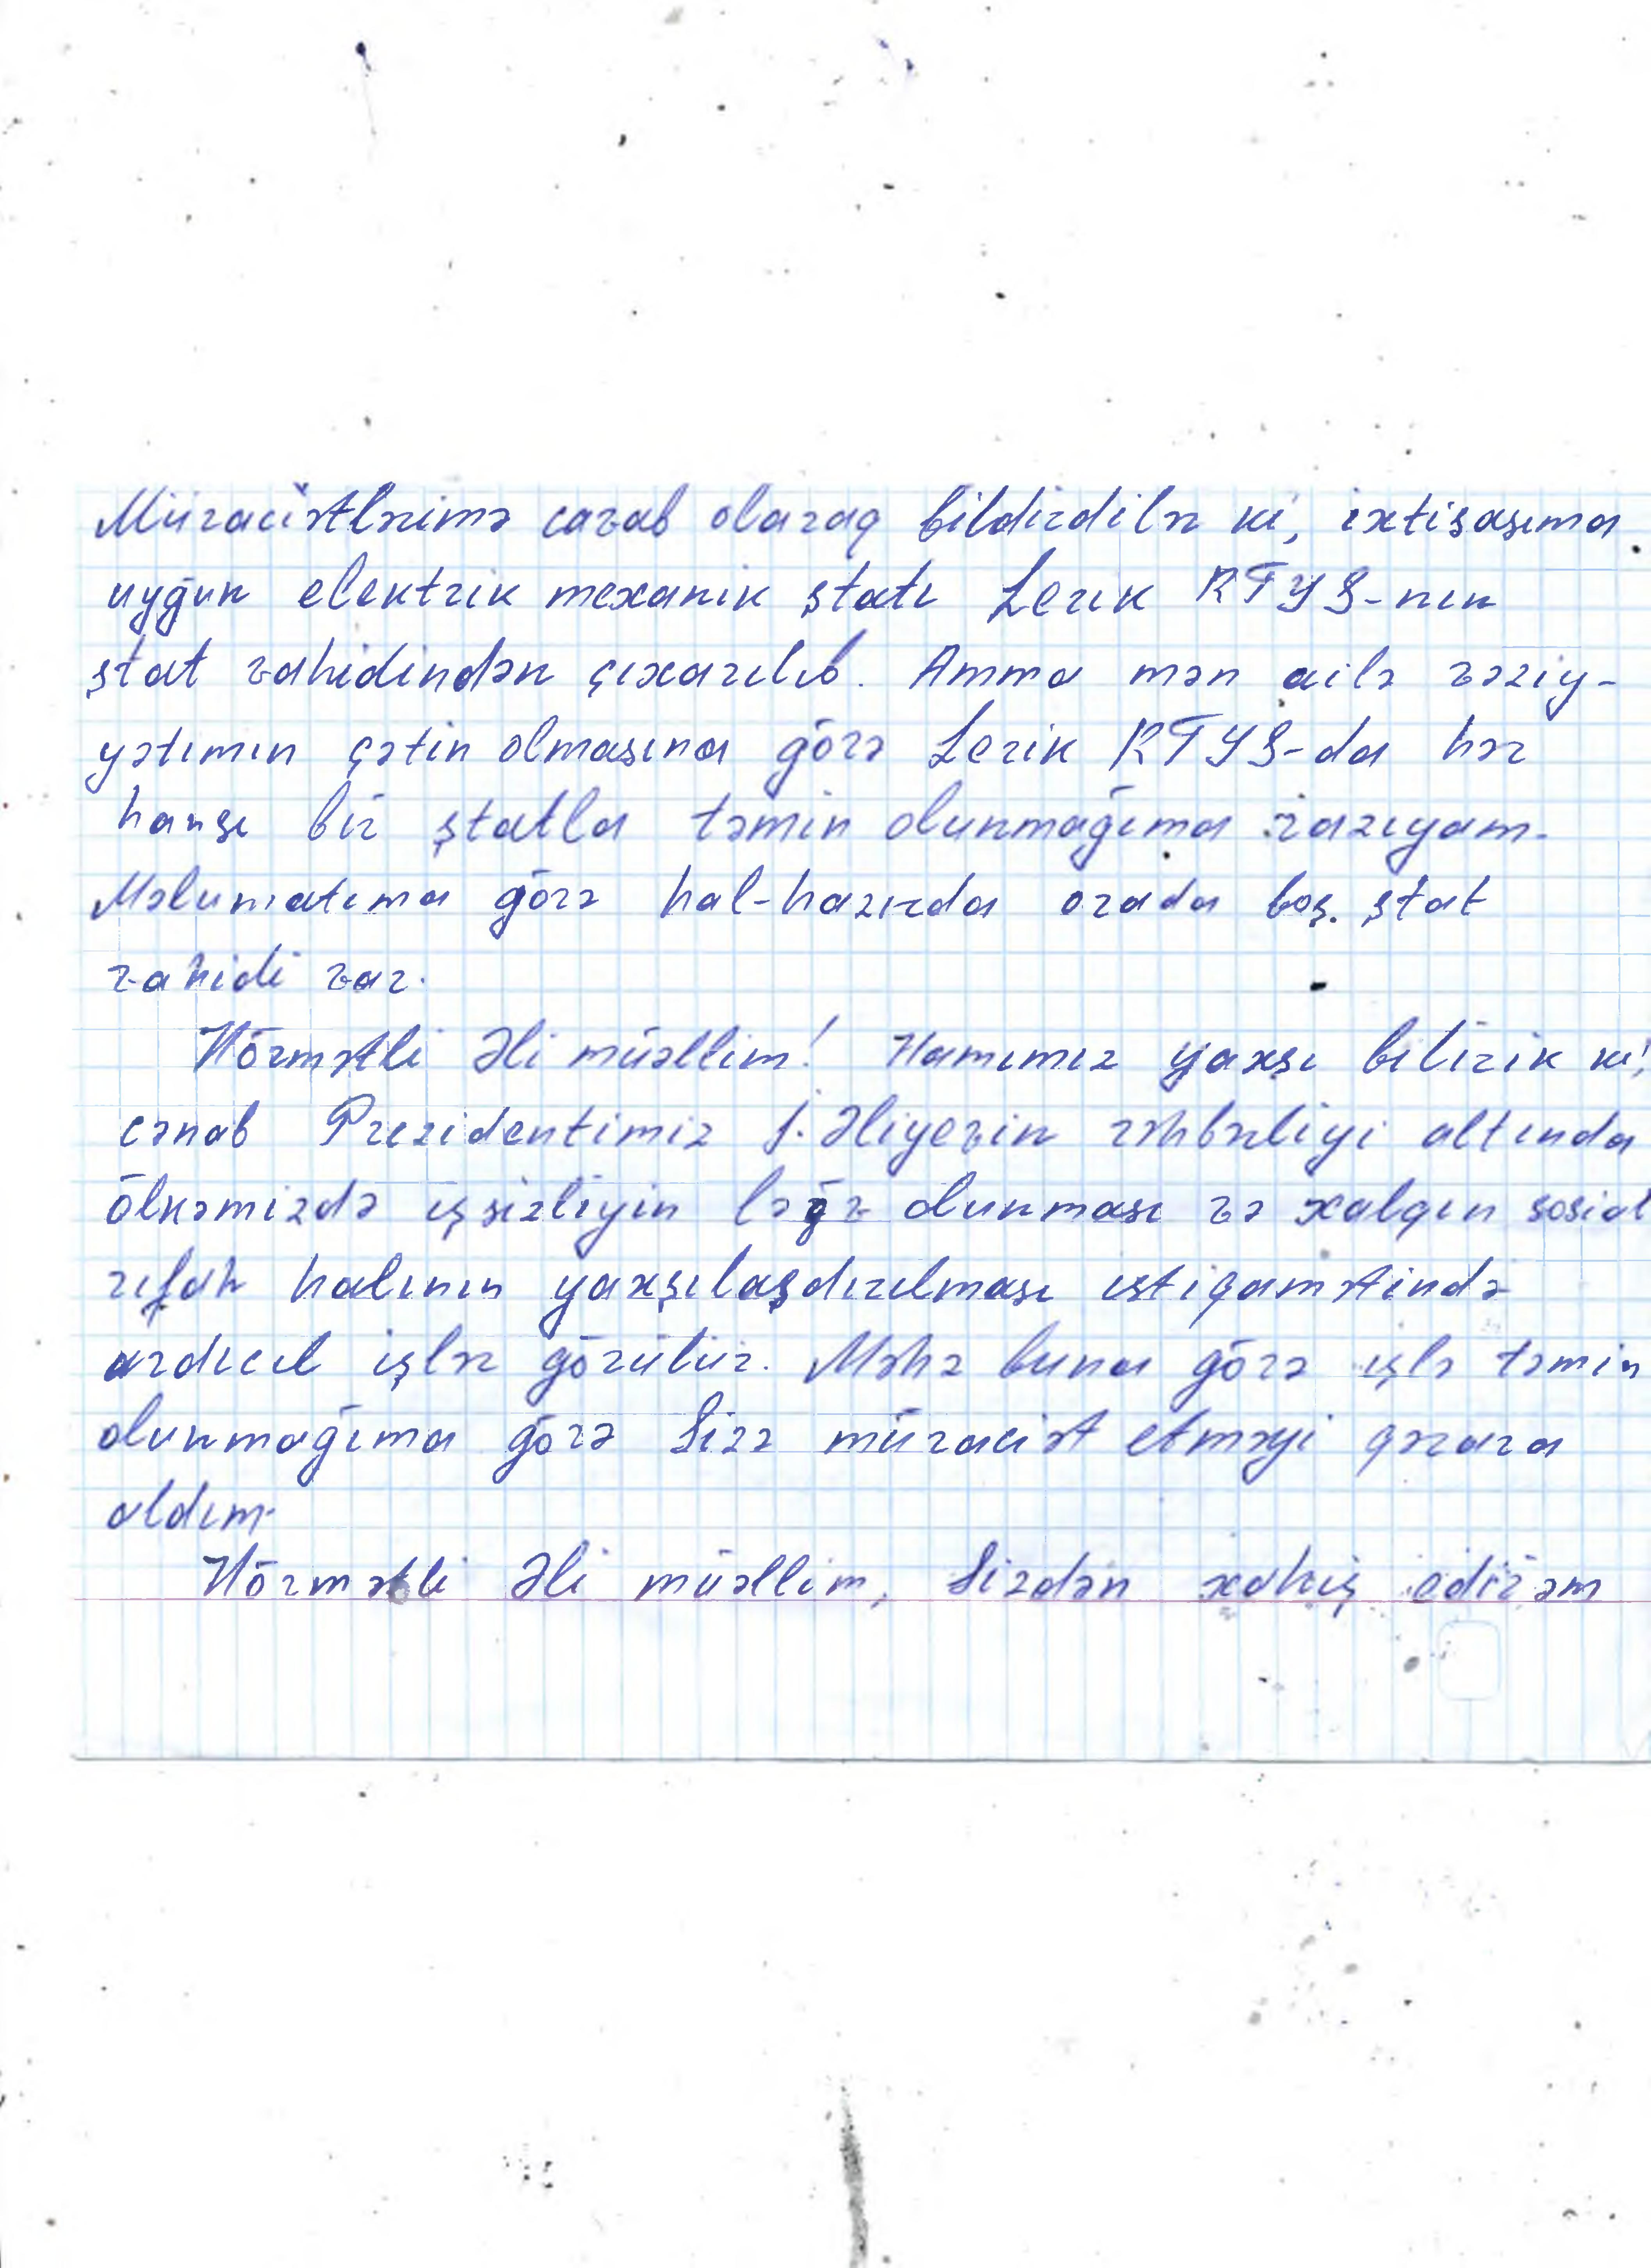 Müraciətlərimə cavab olaraq bildirdilər ki, ixtisasıma
uyğun elektrik mexanik ştatı Lerik RTYS-nın
ştat vahidindən çıxarılıb. Amma mən ailə vəziy-
yətimin çətin olmasına görə Lerik RTYS-da hər
hansı bir ştatla təmin olunmağıma razıyam.
Məlumatıma görə hal-hazırda orada boş ştat
vahidi var.
Hörmətli Əli müəllim! Hamımız yaxşı bilirik ki,
cənab Prezidentimiz İ.Əliyevin rəhbərliyi altında
ölkəmizdə işsizliyin ləğv olunması və xalqın sosial
rifah halının yaxşılaşdırılması istiqamətində
ardıcıl işlər görülür. Məhz buna görə işlə təmin
olunmağıma görə Sizə müraciət etməyi qərara
aldım.
Hörmətli Əli müəllim, Sizdən xahiş edirəm